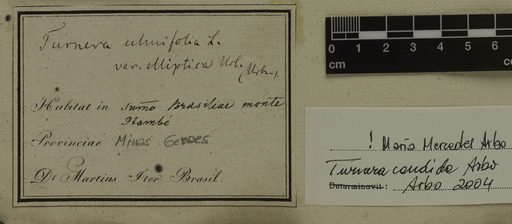 Turnera ulmifolia L.
var. elliptica Urb.
(Urban)
Habitat in summo Brasiliae monte
Itambé
Provinciae Minas Geraes
Dr Martius Iter Brasil.
0 1 2 3 4 5 6
cm
! Maria Mercedes Arbo
Turnera candida Arbo
Determinavit: Arbo 2004